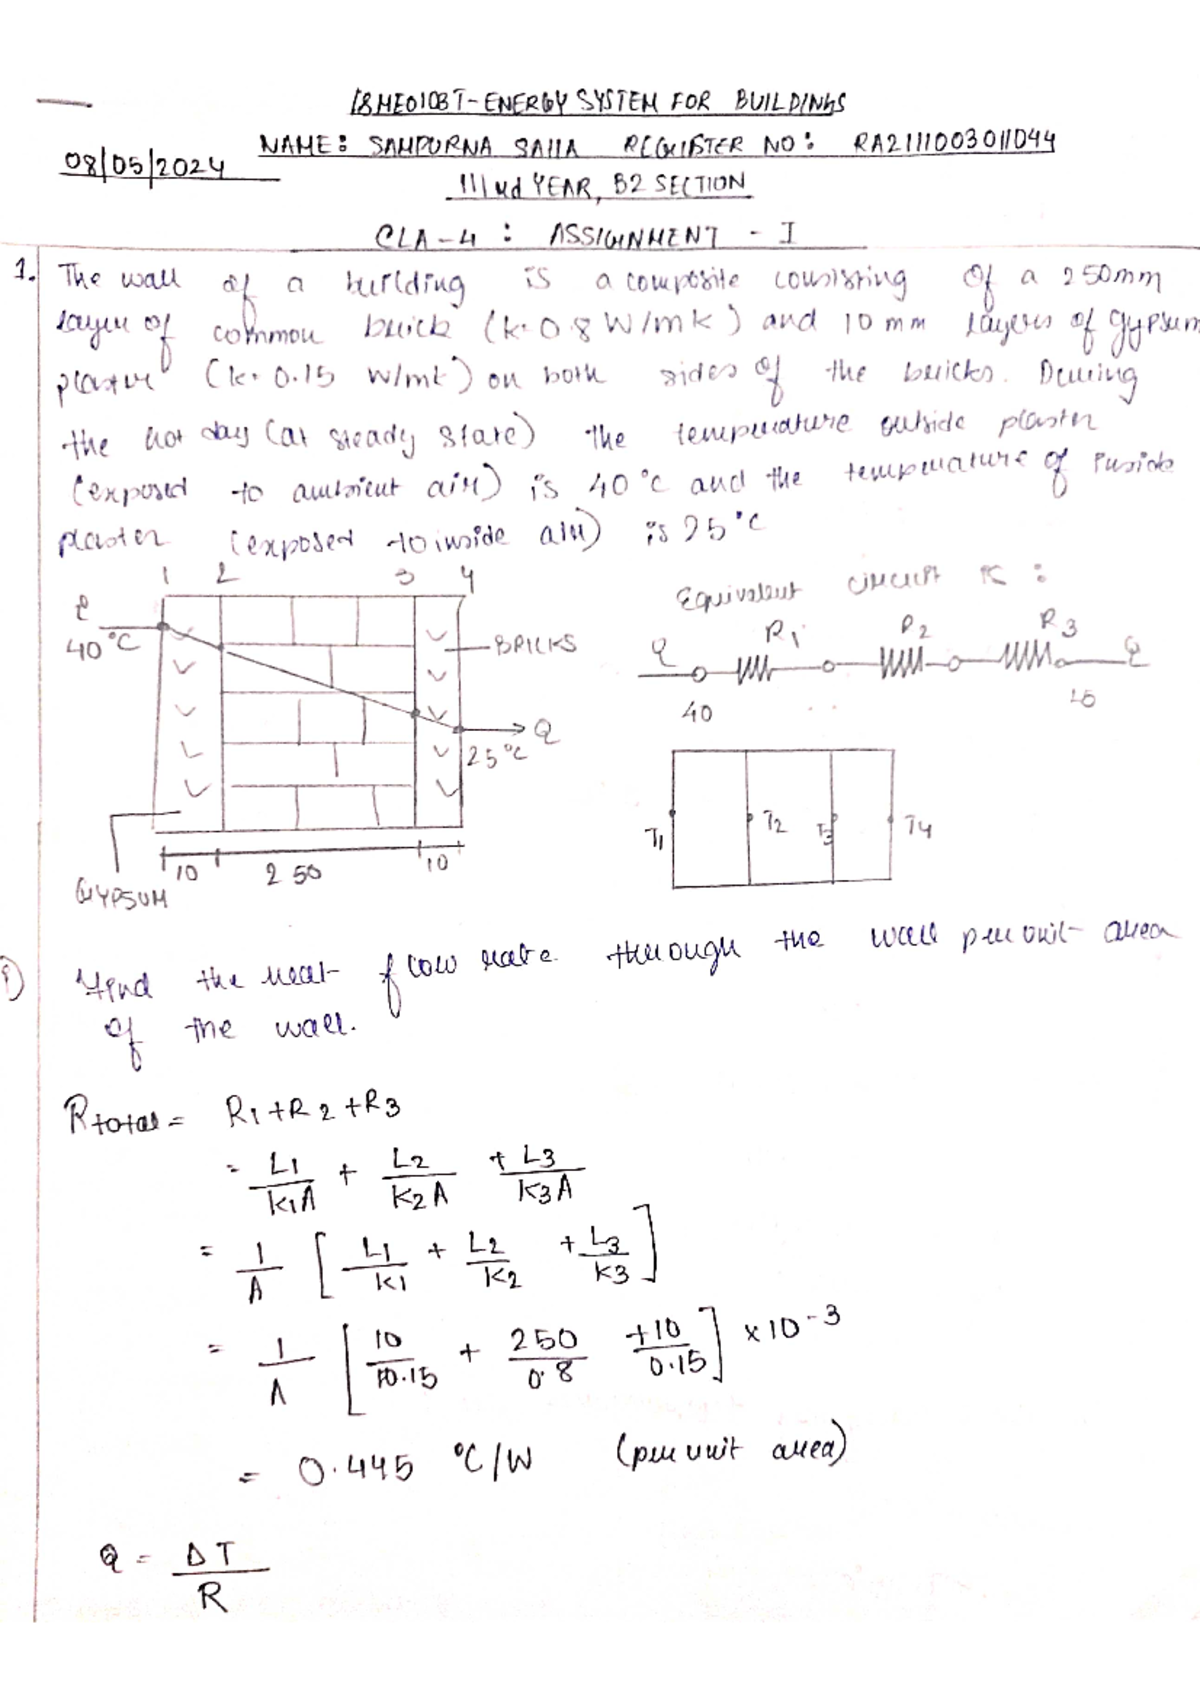 18ME0103T-ENERGY SYSTEM FOR BUILDINGS
NAME: SAMPURNA SAHA REGISTER NO: RA2111003011044
08/05/2024
IIIrd YEAR, B2 SECTION
CLA-4 : ASSIGNMENT - I
1. The wall of a building is a composite consisting of a 250mm
layer of common brick (k=0.8 W/mk) and 10 mm layers of gypsum
plaster (k=0.15 W/mk) on both sides of the bricks. During
the hot day (at steady state) the temperature outside plaster
(exposed to ambient air) is 40°C and the temperature of inside
plaster (exposed to inside air) is 25°C
1 2 3 4
Equivalent circuit is :
Q
40°C
BRICKS
R1 R2 R3
Q Q
40
Q
25°C
T1 T2 T3 T4
10 250 10
GYPSUM
i) Find the heat flow rate through the wall per unit area
of the wall.
Rtotal = R1+R2+R3
= L1/K1A + L2/K2A + L3/K3A
= 1/A [ L1/K1 + L2/K2 + L3/K3 ]
= 1/A [ 10/0.15 + 250/0.8 + 10/0.15 ] x 10-3
= 0.445 °C/W (per unit area)
Q = ΔT/R